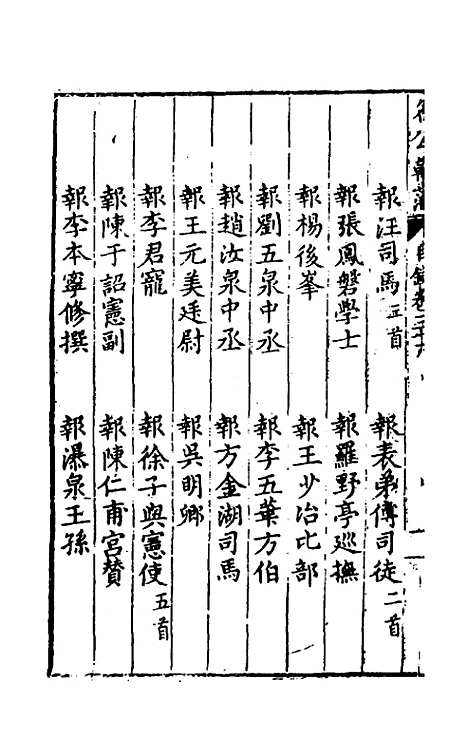 報汪司馬五首
報表弟傅司徒二首
報張鳳磐學士
報羅野亭巡撫
報楊後峯
報王少冶比部
報劉五泉中丞
報李五華方伯
報趙汝泉中丞
報方金湖司馬
報王元美廷尉
報吳明卿
報李君寵
報徐子與憲使五首
報陳于詔憲副
報陳仁甫宮贊
報李本寧修撰
報瀑泉王孫